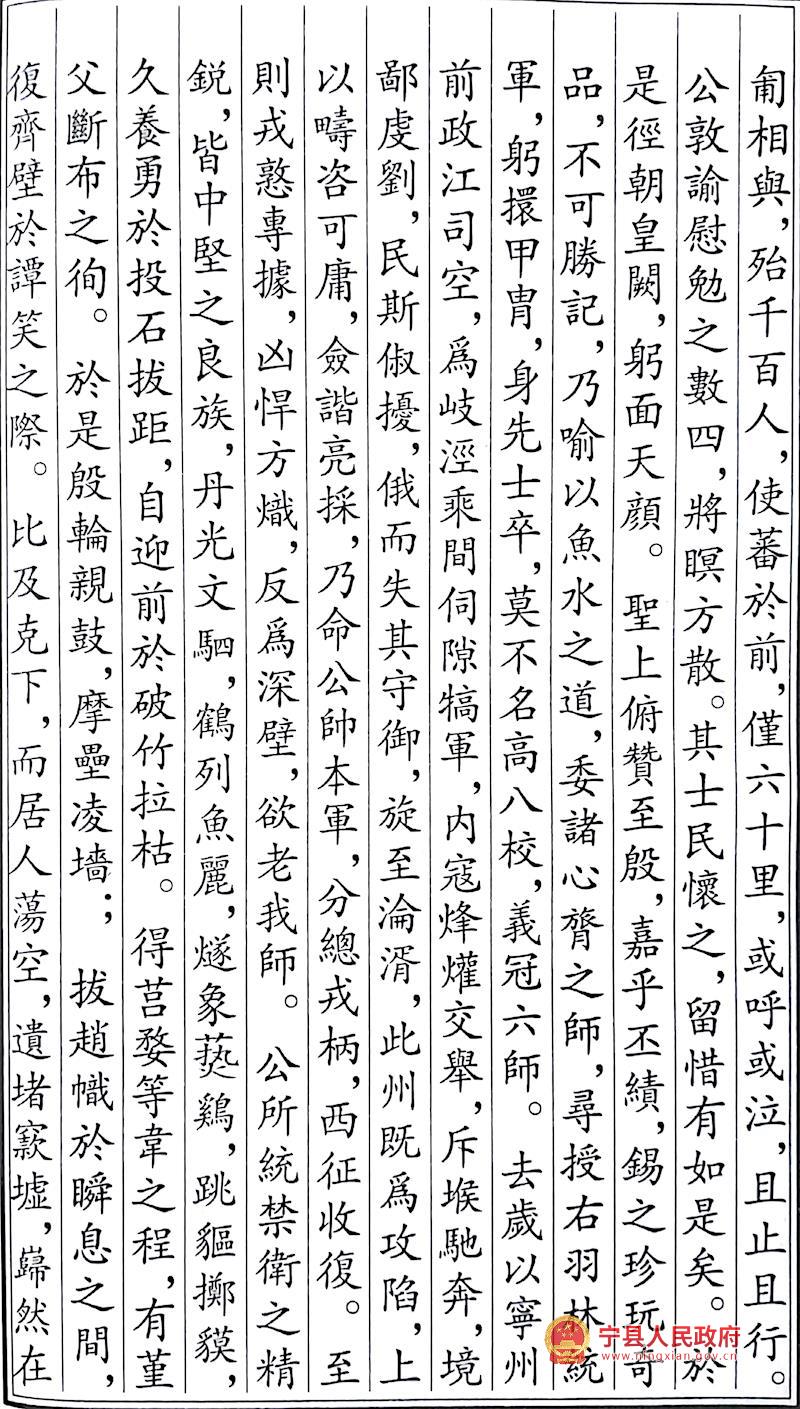 匍相與，殆千百人，使蕃於前，僅六十里，或呼或泣，且止且行。
公敦諭慰勉之數四，將瞑方散。其士民懷之，留惜有如是矣。於
是徑朝皇闕，躬面天顏。 聖上俯贊至殷，嘉乎丕績，錫之珍玩奇
品，不可勝記，乃喻以魚水之道，委諸心膂之師，尋授右羽林統
軍，躬擐甲冑，身先士卒，莫不名高八校，義冠六師。 去歲以寧州
前政江司空，爲岐涇乘間伺隙犒軍，内寇烽爟交舉，斥堠馳奔，境
鄙虔劉，民斯俶擾，俄而失其守御，旋至淪湑，此州既爲攻陷，上
以疇咨可庸，僉諧亮採，乃命公帥本軍，分總戎柄，西征收復。 至
則戎憝專據，凶悍方熾，反爲深壁，欲老我師。 公所統禁衛之精
鋭，皆中堅之良族，丹光文駟，鶴列魚麗，燧象爇鷄，跳貙擲貘，
久養勇於投石拔距，自迎前於破竹拉枯。 得莒婺等韋之程，有堇
父斷布之徇。 於是殷輪親鼓，摩壘凌墻； 拔趙幟於瞬息之間，
復齊壁於譚笑之際。 比及克下，而居人蕩空，遺堵窾墟，巋然在
宁县人民政府
www.ningxian.gov.cn